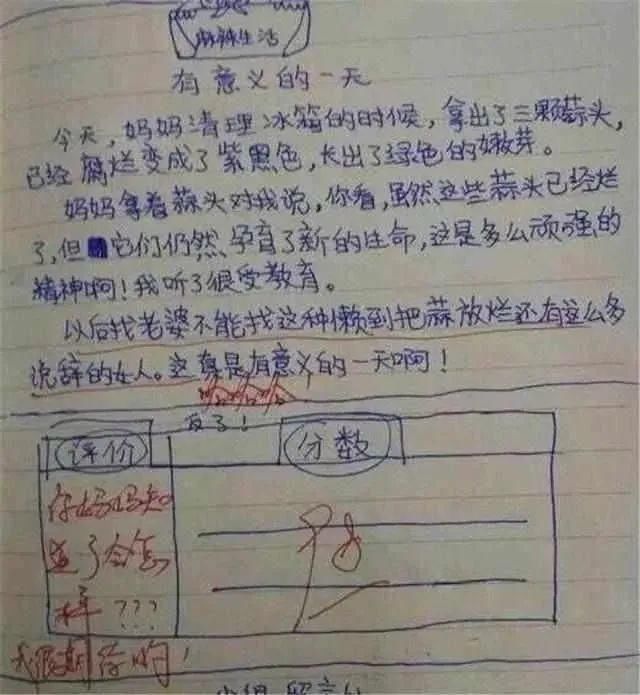 麻辣生活
有意义的一天
今天，妈妈清理冰箱的时候，拿出了三颗蒜头，
已经腐烂变成了紫黑色，长出了绿色的嫩芽。
妈妈拿着蒜头对我说，你看，虽然这些蒜头已经烂
了，但它们仍然孕育了新的生命，这是多么顽强的
精神啊！我听了很受教育。
以后找老婆不能找这种懒到把蒜放烂还有这么多
说辞的女人。这真是有意义的一天啊！
哈哈哈哈
反了！
评价
分数
你妈妈知
道了会怎
样？？？
你哟！